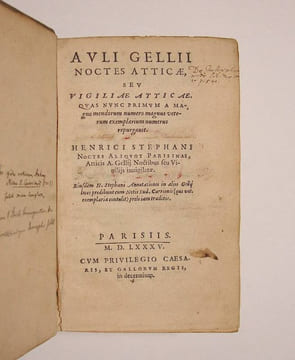 AVLI GELLII
NOCTES ATTICÆ,
SEV
VIGILIAE ATTICAE.
QVAS NVNC PRIMVM A MA-
gno mendorum numero magnus vete-
rum exemplarium numerus
repurgauit.
HENRICI STEPHANI
NOCTES ALIQVOT PARISINAE,
Atticis A. Gellij Noctibus seu Vi-
gilijs inuigilatæ.
Eiusdem H. Stephani Annotationes in alios Gellij
libros prodibunt cum notis Lud. Carrionis (qui vet.
exemplaria contulit) prelo iam traditis.
PARISIIS.
M. D. LXXXV.
CVM PRIVILEGIO CAESA-
RIS, ET GALLORVM REGIS,
in decennium.